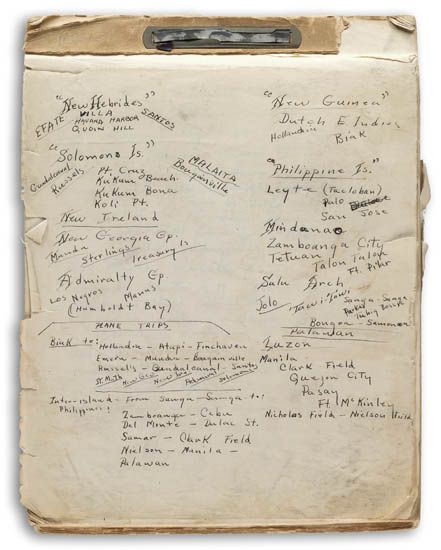 "New Hebrides"
EFATE VILLA SANTOS
HAVANA HARBOR
QUOIN HILL
"Solomons Is."
Guadalcanal Pt. Cruz MALAITA
Russels KuKum Beach Bougainville
KuKum Bona
Koli Pt.
New Ireland
New Georgia Gp.
Munda Sterlings Treasury Is
Admiralty Gp.
Los Negros Manus
(Humboldt Bay)
PLANE TRIPS
Biak to: Hollandia - Atapi - Finchaven
Emeru - Munda - Bougainville
Russells - Guadalcanal - Santos
St. Math New Geo. New Ire. Admiral Solomons
Inter-island - From Sanga-Sanga - to:
Philippines:
Zamboanga - Cebu
Del Monte - Dulac St.
Samar - Clark Field
Nielson - Manila -
Palawan
"New Guinea"
Dutch E Indies
Hollandia Biak
"Philippine Is."
Leyte (Tacloban)
Palo
San Jose
Mindanao
Zamboanga City
Tetuan
Talon Talon
Ft. Pilar
Sulu Arch
Jolo Tawi Tawi Sanga-Sanga
Bongao - Samonor
Palawan
Luzon
Manila
Clark Field
Quezon City
Pasay
Ft. McKinley
Nichols Field - Nielson Field